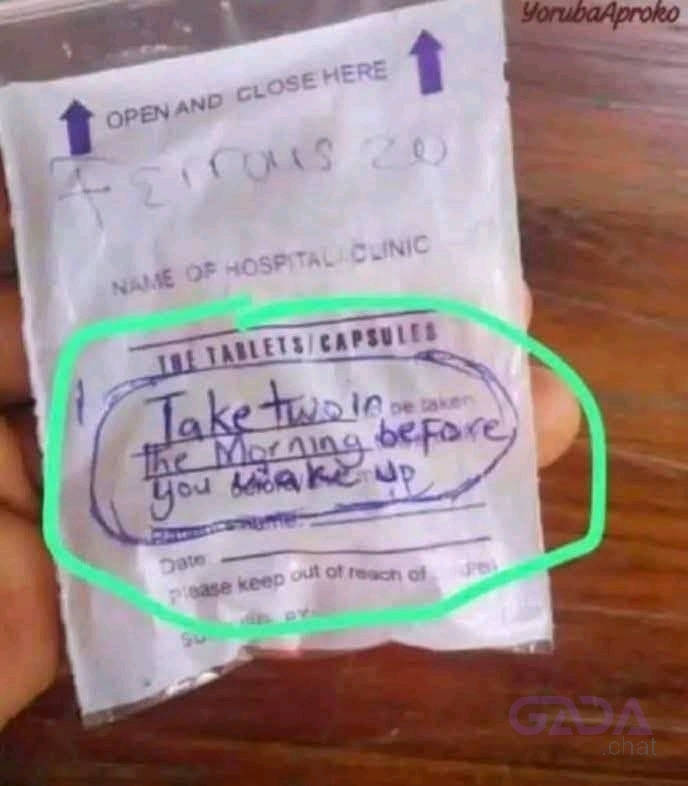 YorubaAproko
OPEN AND CLOSE HERE
Ferrous 20
NAME OF HOSPITAL/CLINIC
THE TABLETS/CAPSULES
Take two in be taken
the Morning before
you wake up
Date
Please keep out of reach of
GADA
.chat